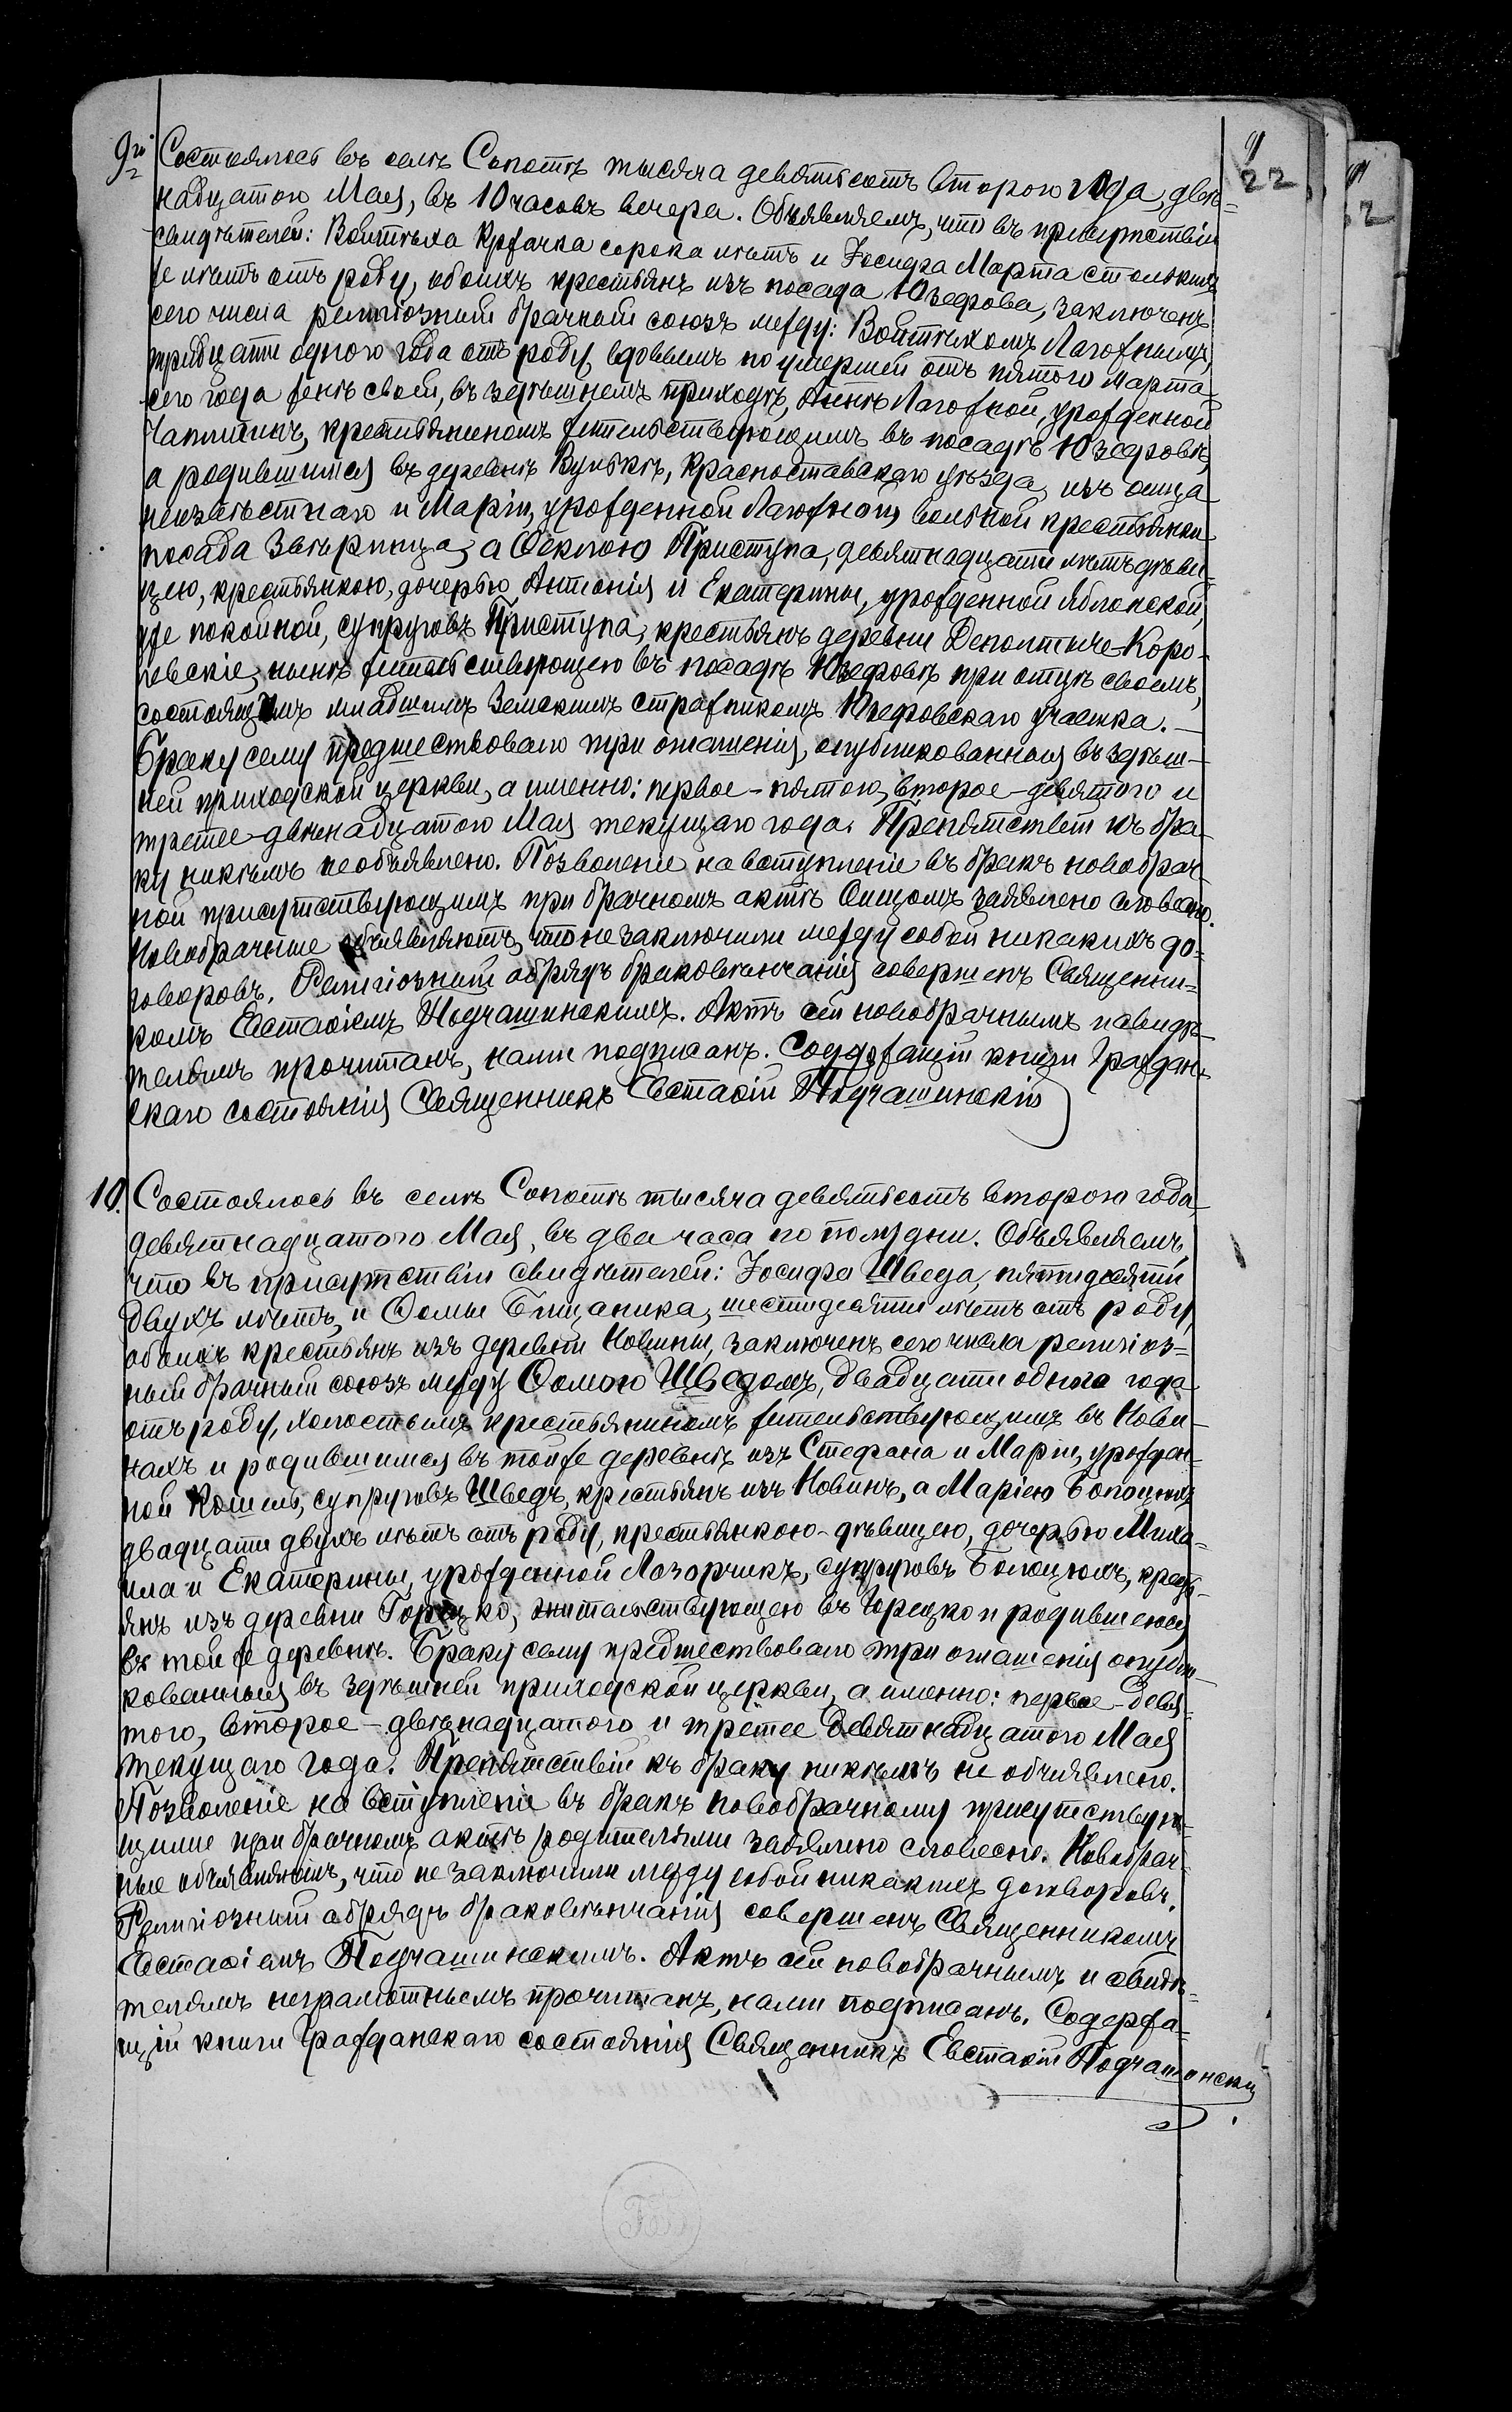 9
22
9й Состоялось въ селѣ Сопотѣ тысяча девятьсотъ второго года, двѣ=
надцатого Мая, въ 10 часовъ вечера. Объявляемъ, что въ присутствіи
свидѣтелей: Войтѣха сорока лѣтъ и Іосифа Марта столькихъ
же лѣтъ отъ роду, обоихъ крестьянъ изъ посада Юзефова, заключенъ
сего числа религіозный брачный союзъ между: Войтѣхомъ Лагожнымъ,
тридцати одного года отъ роду, вдовымъ по умершей отъ пятого Марта
сего года женѣ своей, въ здѣшнемъ приходѣ, Аннѣ Лагожной, урожденной
крестьяниномъ жительствующимъ въ посадѣ Юзефовѣ,
а родившимся въ деревнѣ Вулькѣ, Красноставскаго уѣзда, изъ отца
неизвѣстнаго и Маріи, урожденной Лагожной, вольной крестьянки
посада Звѣринца, а Ѳеклою Приступа, девятнадцати лѣтъ дѣви-
цею, крестьянкою, дочерью Антонія и Екатерины, урожденной Яблонской,
уже покойной, супруговъ Приступа, крестьянъ деревни Деполтыче-Коро-
левскіе, нынѣ жительствующею въ посадѣ Юзефовѣ при отцѣ своемъ,
состоящимъ младшимъ Земскимъ стражникомъ Юзефовскаго участка. —
Браку сему предшествовало три оглашенія, опубликованныя въ здѣш-
ней приходской церкви, а именно: первое – пятого, второе – девятого и
третее – двѣнадцатого Мая текущаго года. Препятствій къ бра-
ку никѣмъ необъявлено. Позволеніе на вступленіе въ бракъ новобрач-
ной присутствующимъ при брачномъ актѣ Отцомъ заявлено словесно.
Новобрачные объявляютъ, что не заключили между собой никакихъ до-
говоровъ. Религіозный обрядъ браковѣнчанія совершенъ Священни=
комъ Евстаѳіемъ Подчашинскимъ. Актъ сей новобрачнымъ и свидѣ-
телямъ прочитанъ, нами подписанъ. Содержащій книги Граждан-
скаго состоянія Священникъ Евстаѳій Подчашинскій
10. Состоялось въ селѣ Сопотѣ тысяча девятьсотъ второго года,
девятнадцатого Мая, въ два часа по полудни. Объявляемъ,
что въ присутствіи свидѣтелей: Іосифа Шведа, пятидесяти
двухъ лѣтъ, и Ѳомы шестидесяти лѣтъ отъ роду,
обоихъ крестьянъ изъ деревни Новины, заключенъ сего числа религіоз=
ный брачный союзъ между Ѳомою Шведомъ, двадцати одного года
отъ роду, холостымъ крестьяниномъ жительствующимъ въ Нови-
нахъ и родившимся въ той же деревнѣ изъ Стефана и Маріи, урожден-
ной Кошель, супруговъ Шведъ, крестьянъ изъ Новинъ, а Маріею
двадцати двухъ лѣтъ отъ роду, крестьянкою – дѣвицею, дочерью Миха-
ила и Екатерины, урожденной Лазорчикъ, супруговъ кресть-
янъ изъ деревни Горецко, жительствующею въ Горецко и родившеюся
въ той же деревнѣ. Браку сему предшествовало три оглашенія опубли-
кованныя въ здѣшней приходской церкви, а именно: первое – девя-
того, второе – двѣнадцатого и третее девятнадцатого Мая
текущаго года. Препятствій къ браку никѣмъ не объявлено.
Позволеніе на вступленіе въ бракъ новобрачному присутствую-
щими при брачномъ актѣ родителями заявлено словесно. Новобрач-
ные объявляютъ, что не заключили между собой никакихъ договоровъ.
Религіозный обрядъ браковѣнчанія совершенъ Священникомъ
Евстаѳіемъ Подчашинскимъ. Актъ сей новобрачнымъ и свидѣ-
телямъ неграмотнымъ прочитанъ, нами подписанъ. Содержа-
щій книги Гражданскаго состоянія Священникъ Евстаѳій Подчашинскій